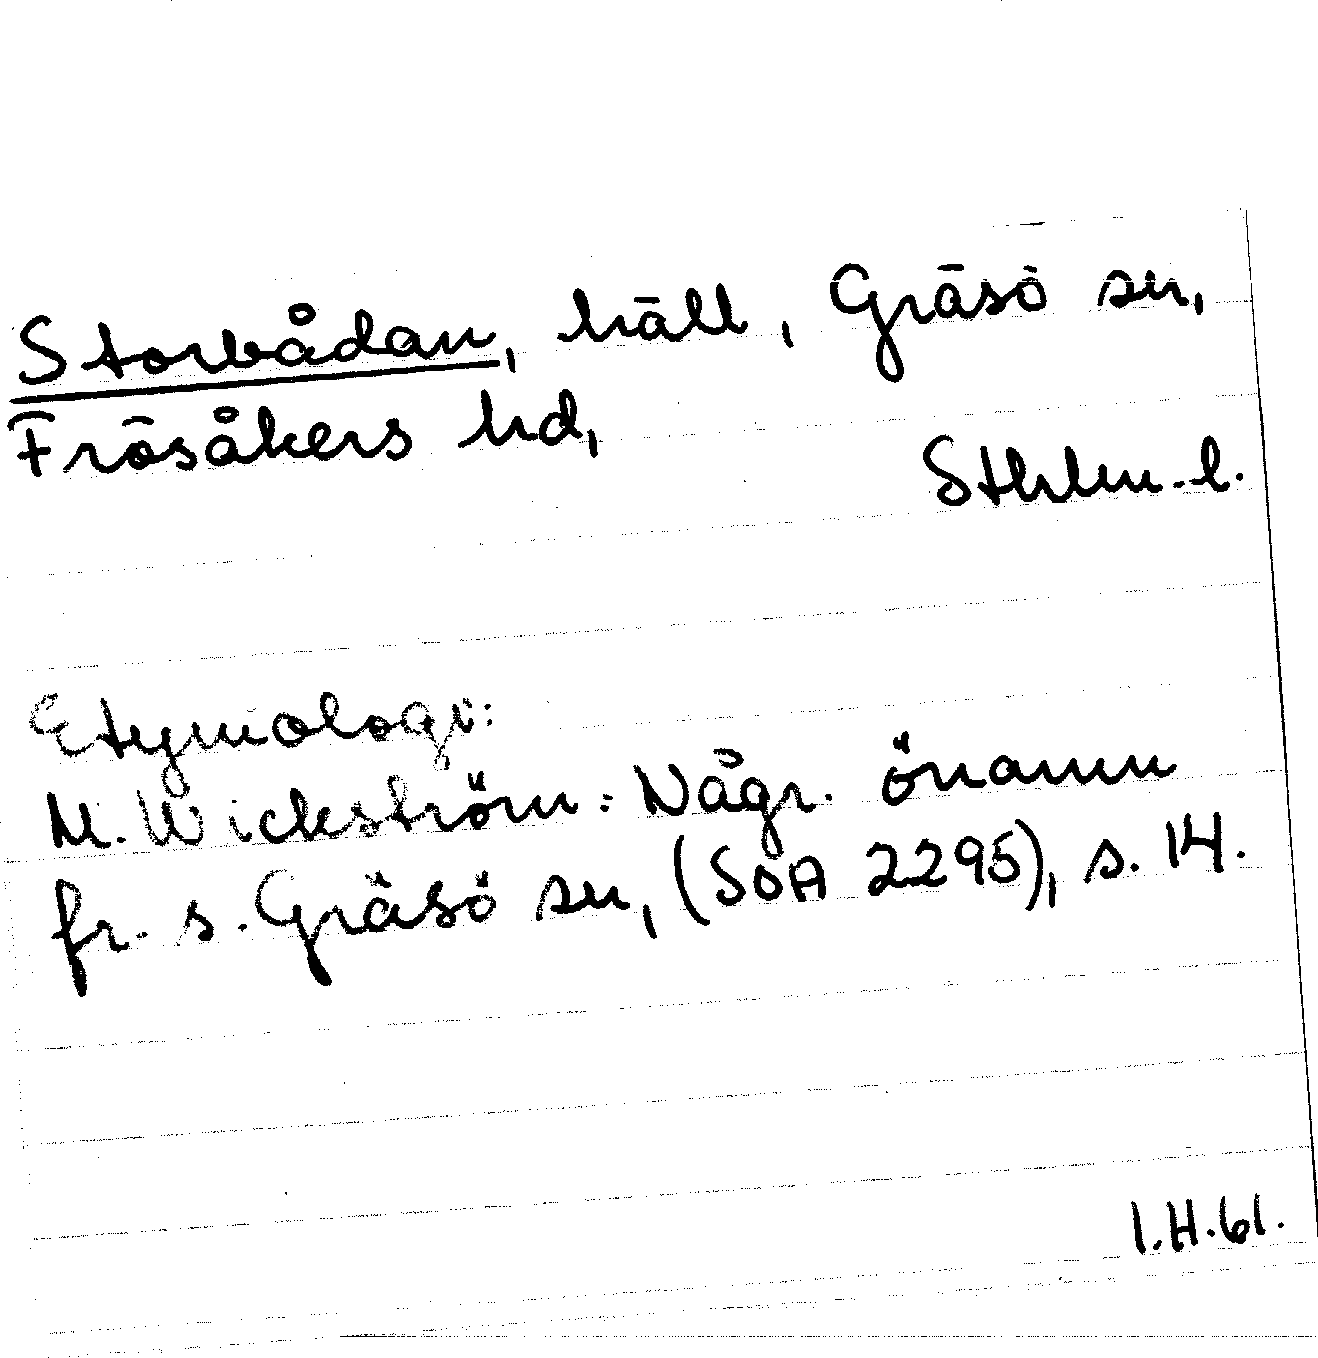 Storbådan, häll, Gräsö sn,
Frösåkers hd,
Sthlm.l.
Etymologi:
M. Wickström: Någr. önamn
fr. s. Gräsö sn, (SOA 2295), s. 14.
I.H.61.